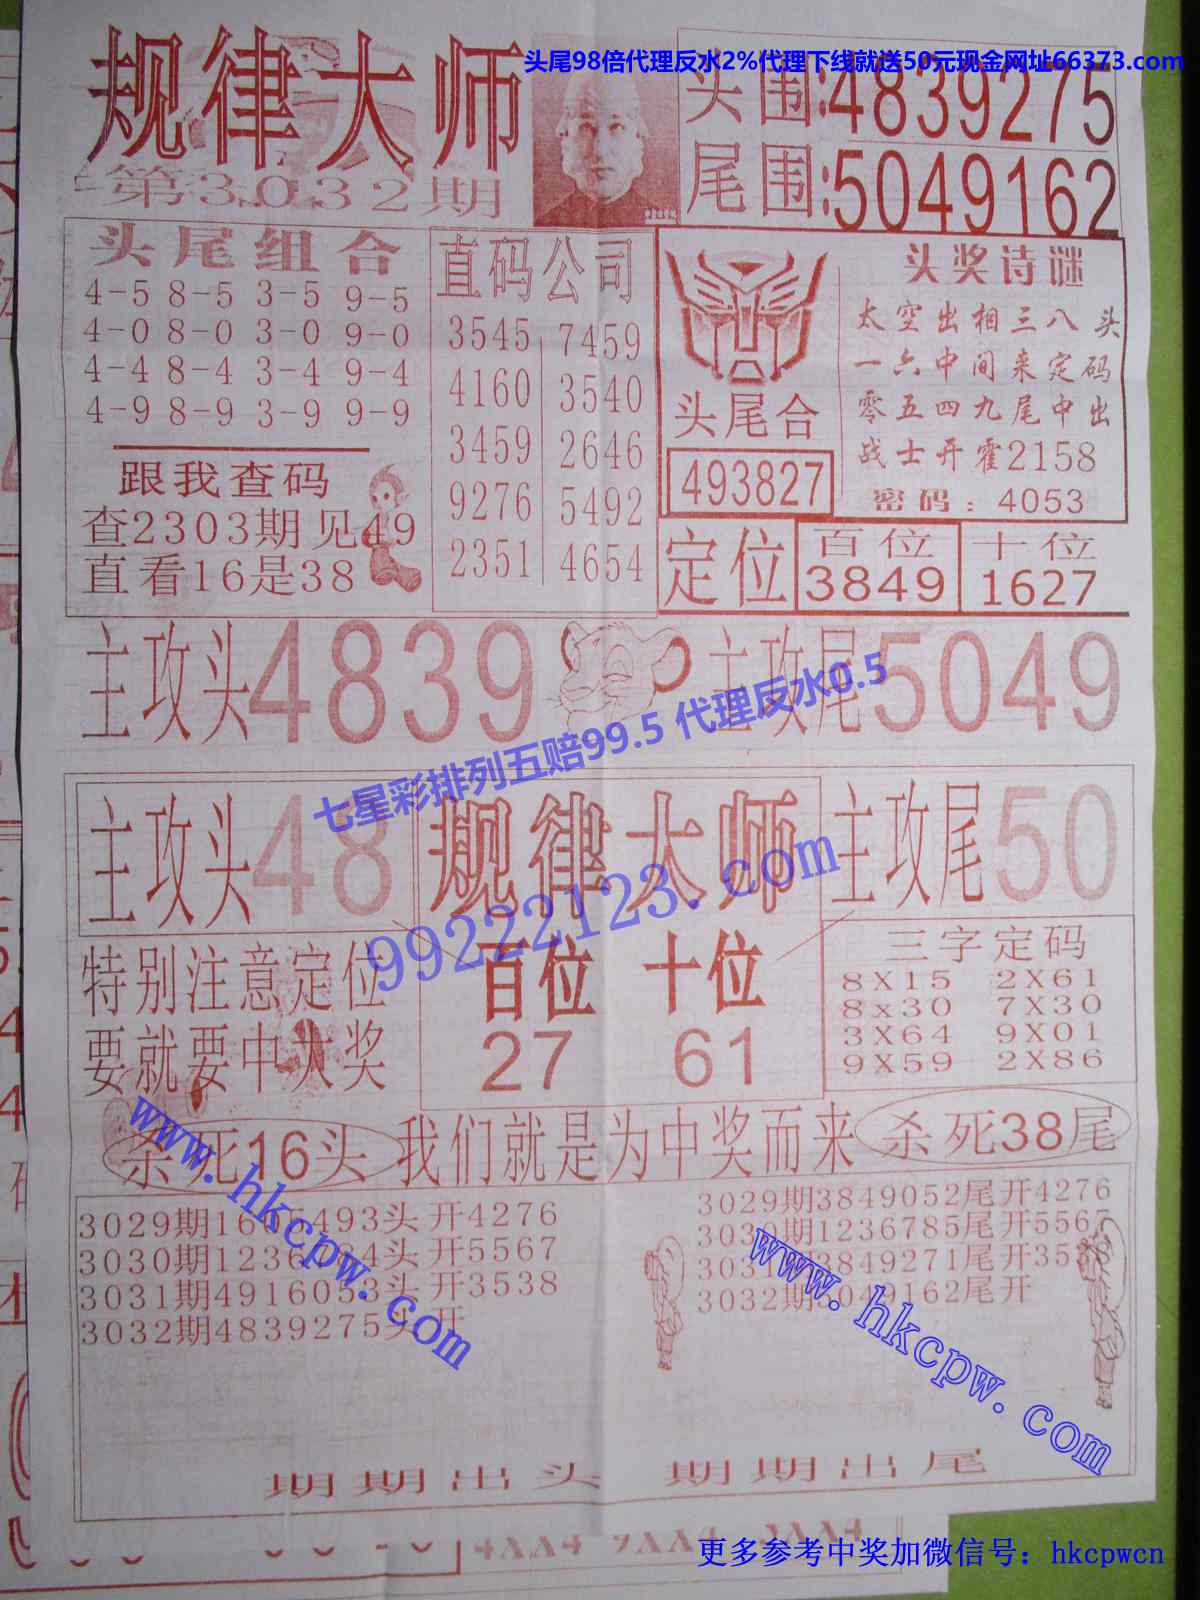 头尾98倍代理反水2%代理下线就送50元现金网址66373.com
规律大师
第3032期
头围:4839275
尾围:5049162
头尾组合
4-5 8-5 3-5 9-5
4-0 8-0 3-0 9-0
4-4 8-4 3-4 9-4
4-9 8-9 3-9 9-9
跟我查码
查2303期见49
直看16是38
直码公司
3545 7459
4160 3540
3459 2646
9276 5492
2351 4654
头尾合
493827
头奖诗谜
太空出相三八头
一六中间来定码
零五四九尾中出
战士开霍2158
密码:4053
定位
百位
3849
十位
1627
主攻头4839
主攻尾5049
七星彩排列五赔99.5 代理反水0.5
主攻头48
规律大师
主攻尾50
99222123.com
特别注意定位
要就要中大奖
百位 十位
27 61
三字定码
8X15 2X61
8x30 7X30
3X64 9X01
9X59 2X86
杀死16头
我们就是为中奖而来
杀死38尾
www.hkcpw.com
3029期16 5493头开4276
3030期1236 4头开5567
3031期4916053头开3538
3032期4839275头开
3029期3849052尾开4276
3030期1236785尾开5567
3031期3849271尾开353
3032期5049162尾开
www.hkcpw.com
期期出头 期期出尾
更多参考中奖加微信号：hkcpwcn